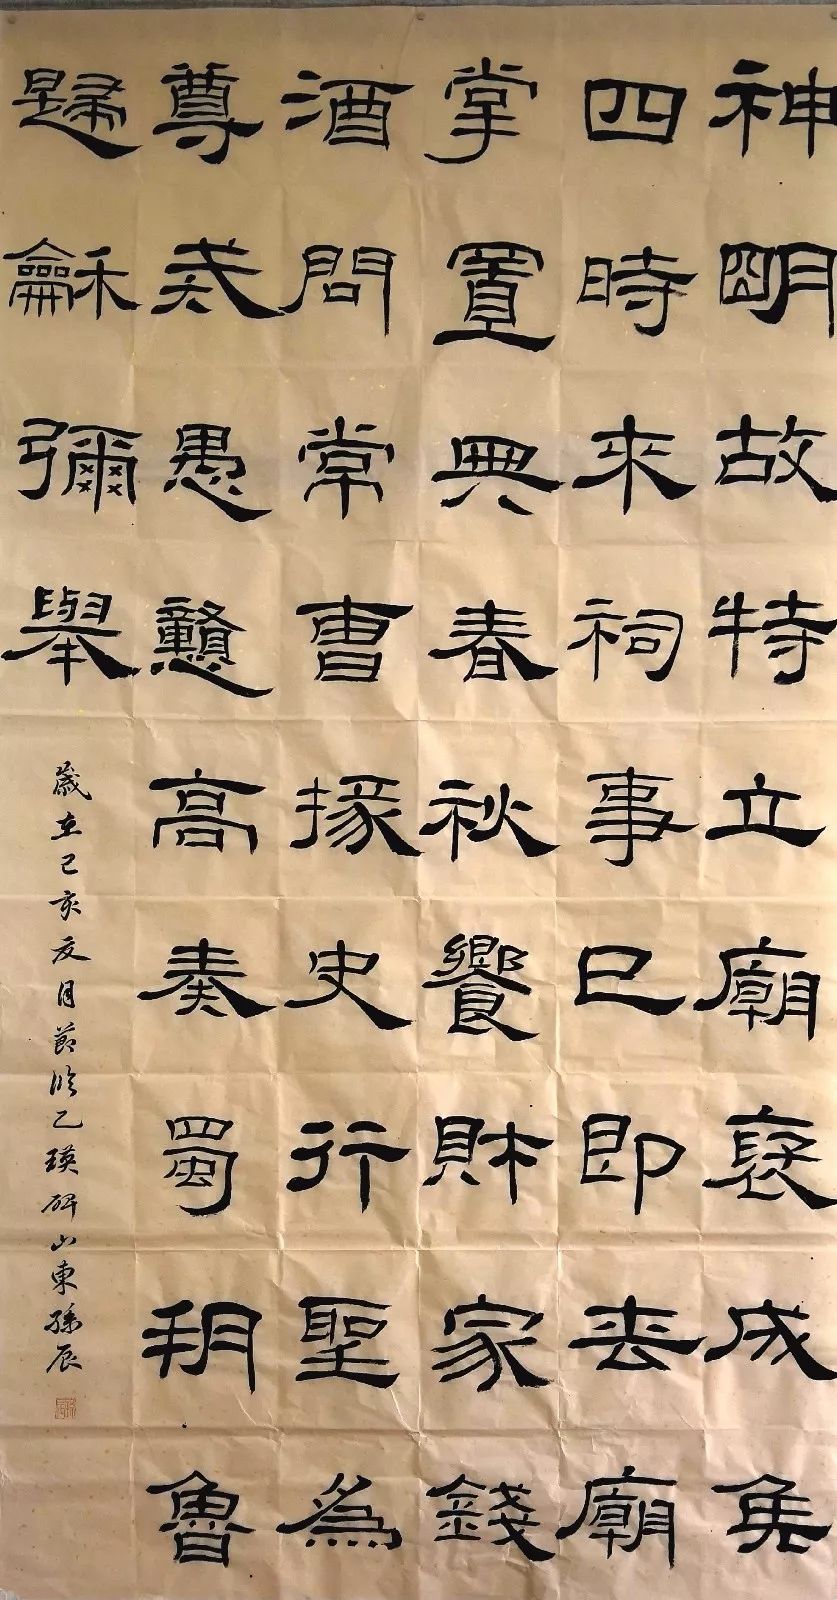 神明故特立廟褒成侯
四時來祠事已即去廟
掌置典春秋饗財家錢
酒問常曹掾史行聖為
尊愚戇高奏蜀朔魯
歸龢彌舉
歲在己亥夏月節臨乙瑛碑山東孫辰